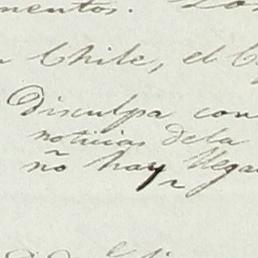 mentos.
n Chile, el C
Disculpa con
noticias dela
ño hay llega